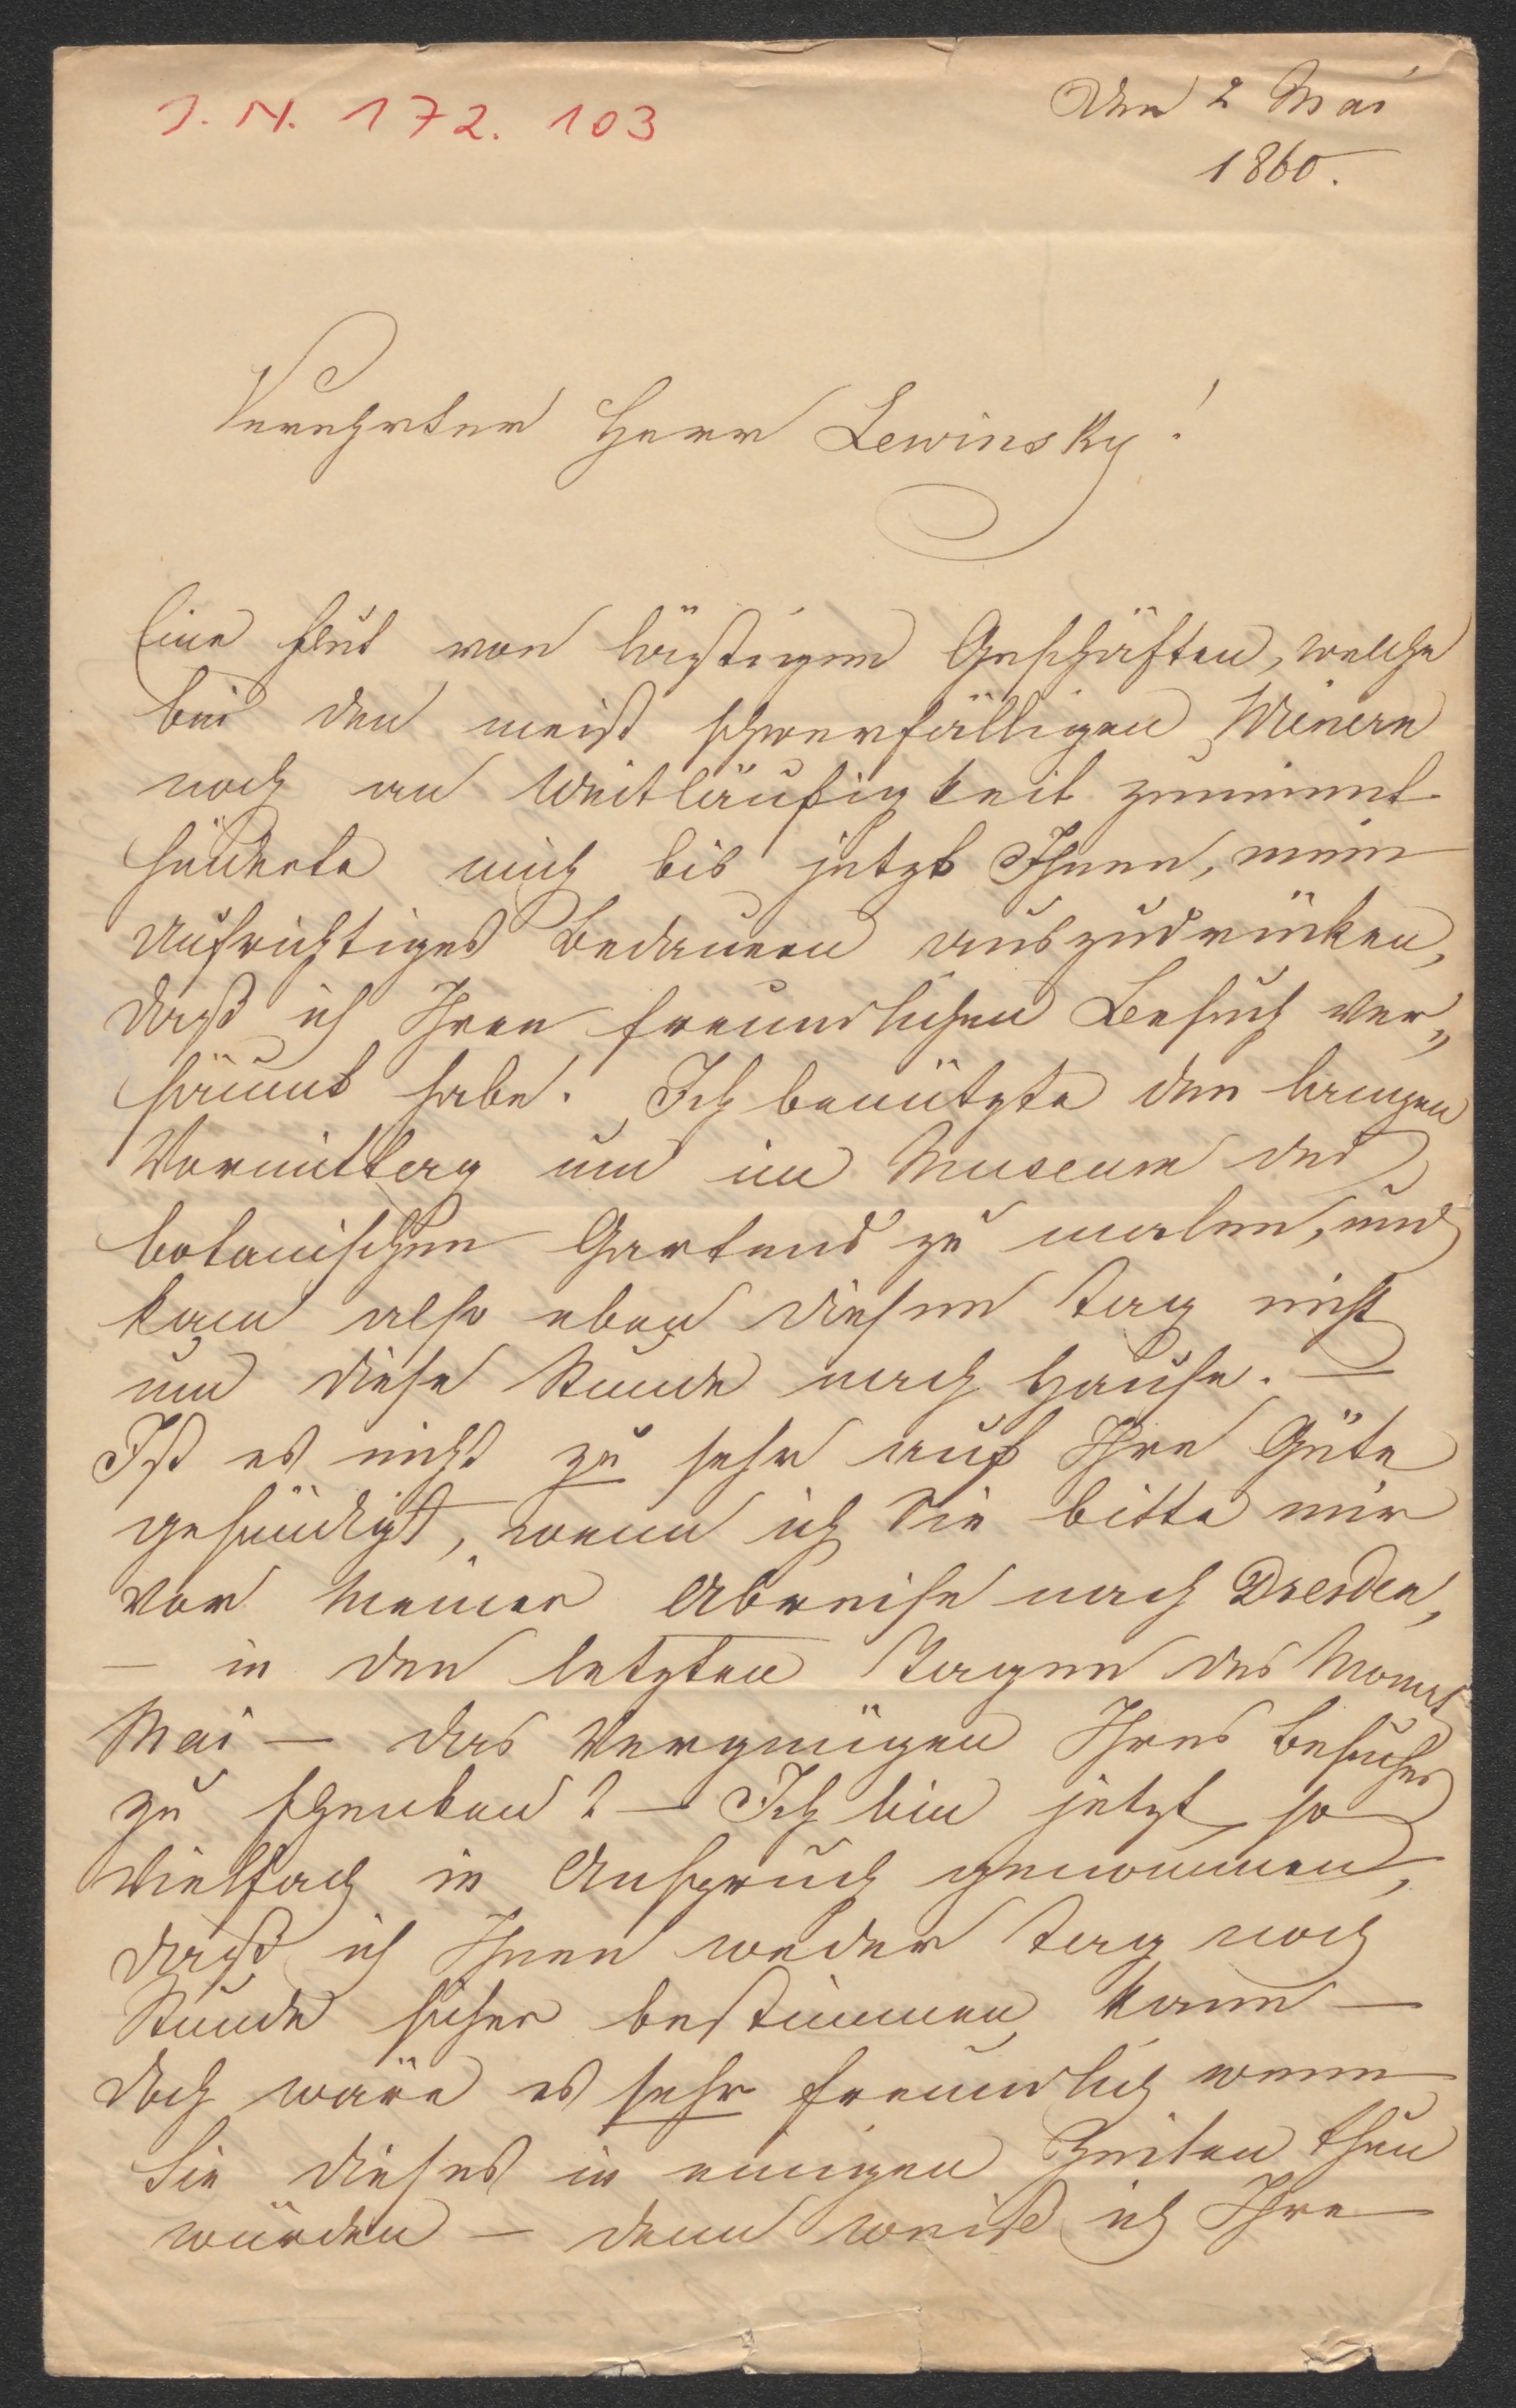 J. N. 172. 103
Den 2 Mai
1860.
Verehrter Herr Lewinsky!
Eine Flut von lästigen Geschäften, welche
bei den meist schwerfälligen Wienern
noch an Weitläufigkeit zunimmt
hinderte mich bis jetzt Ihnen, mein
aufrichtiges Bedauern auszudrücken,
daß ich Ihren freundlichen Besuch ver„
säumt habe. Ich benützte den langen
Vormittag um im Museum des
botanischen Gartens zu malen, und
kam also eben diesen Tag nicht
um diese Stunde nach Hause. —
Ist es nicht zu sehr auf Ihre Güte
gesündigt, wenn ich Sie bitte mir
vor meiner Abreise nach Dresden,
— in den letzten Tagen des Monat
Mai — das Vergnügen Ihres Besuches
zu schenken? — Ich bin jetzt so
vielfach in Anspruch genommen,
daß ich Ihnen weder Tag noch
Stunde sicher bestimmen kann —
doch wäre es sehr freundlich wenn
Sie dieses in einigen Zeilen thun
würden — denn weiß ich Ihre